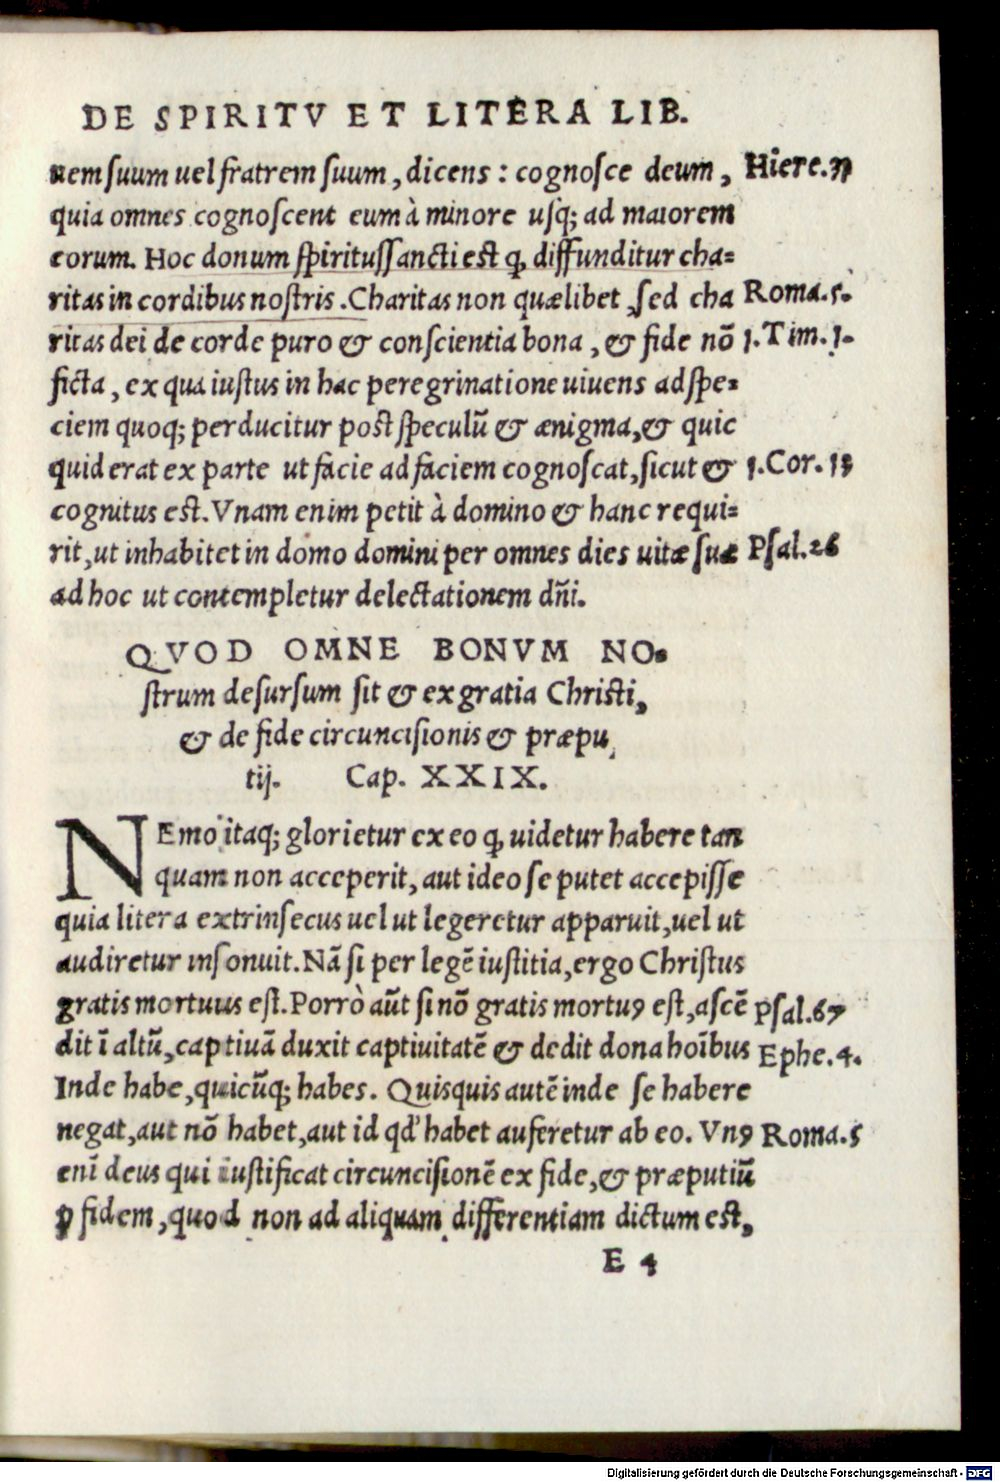 DE SPIRITV ET LITERA LIB.
nem suum uel fratrem suum, dicens : cognosce deum, Hiere.31
quia omnes cognoscent eum à minore usq; ad maiorem
eorum. Hoc donum spiritussancti est ꝙ diffunditur cha=
ritas in cordibus nostris. Charitas non quælibet, sed cha Roma.5.
ritas dei de corde puro & conscientia bona, & fide nō 1.Tim.1.
ficta, ex qua iustus in hac peregrinatione uiuens ad spe=
ciem quoq; perducitur post speculū & ænigma, & quic
quid erat ex parte ut facie ad faciem cognoscat, sicut & 1.Cor.13
cognitus est. Vnam enim petit à domino & hanc requi=
rit, ut inhabitet in domo domini per omnes dies uitæ suæ Psal.26
ad hoc ut contempletur delectationem dñi.
QVOD OMNE BONVM NO=
strum desursum sit & ex gratia Christi,
& de fide circuncisionis & præpu
tij. Cap. XXIX.
NEmo itaq; glorietur ex eo ꝙ uidetur habere tan
quam non acceperit, aut ideo se putet accepisse
quia litera extrinsecus uel ut legeretur apparuit, uel ut
audiretur insonuit. Nā si per legē iustitia, ergo Christus
gratis mortuus est. Porrò aūt si nō gratis mortuꝰ est, ascē Psal.67
dit ī altū, captiuā duxit captiuitatē & dedit dona hoībus Ephe.4.
Inde habe, quicūq; habes. Quisquis autē inde se habere
negat, aut nō habet, aut id qd' habet auferetur ab eo. Vnꝰ Roma.5
enī deus qui iustificat circuncisionē ex fide, & præputiū
ꝑ fidem, quod non ad aliquam differentiam dictum est,
E 4
Digitalisierung gefördert durch die Deutsche Forschungsgemeinschaft - DFG